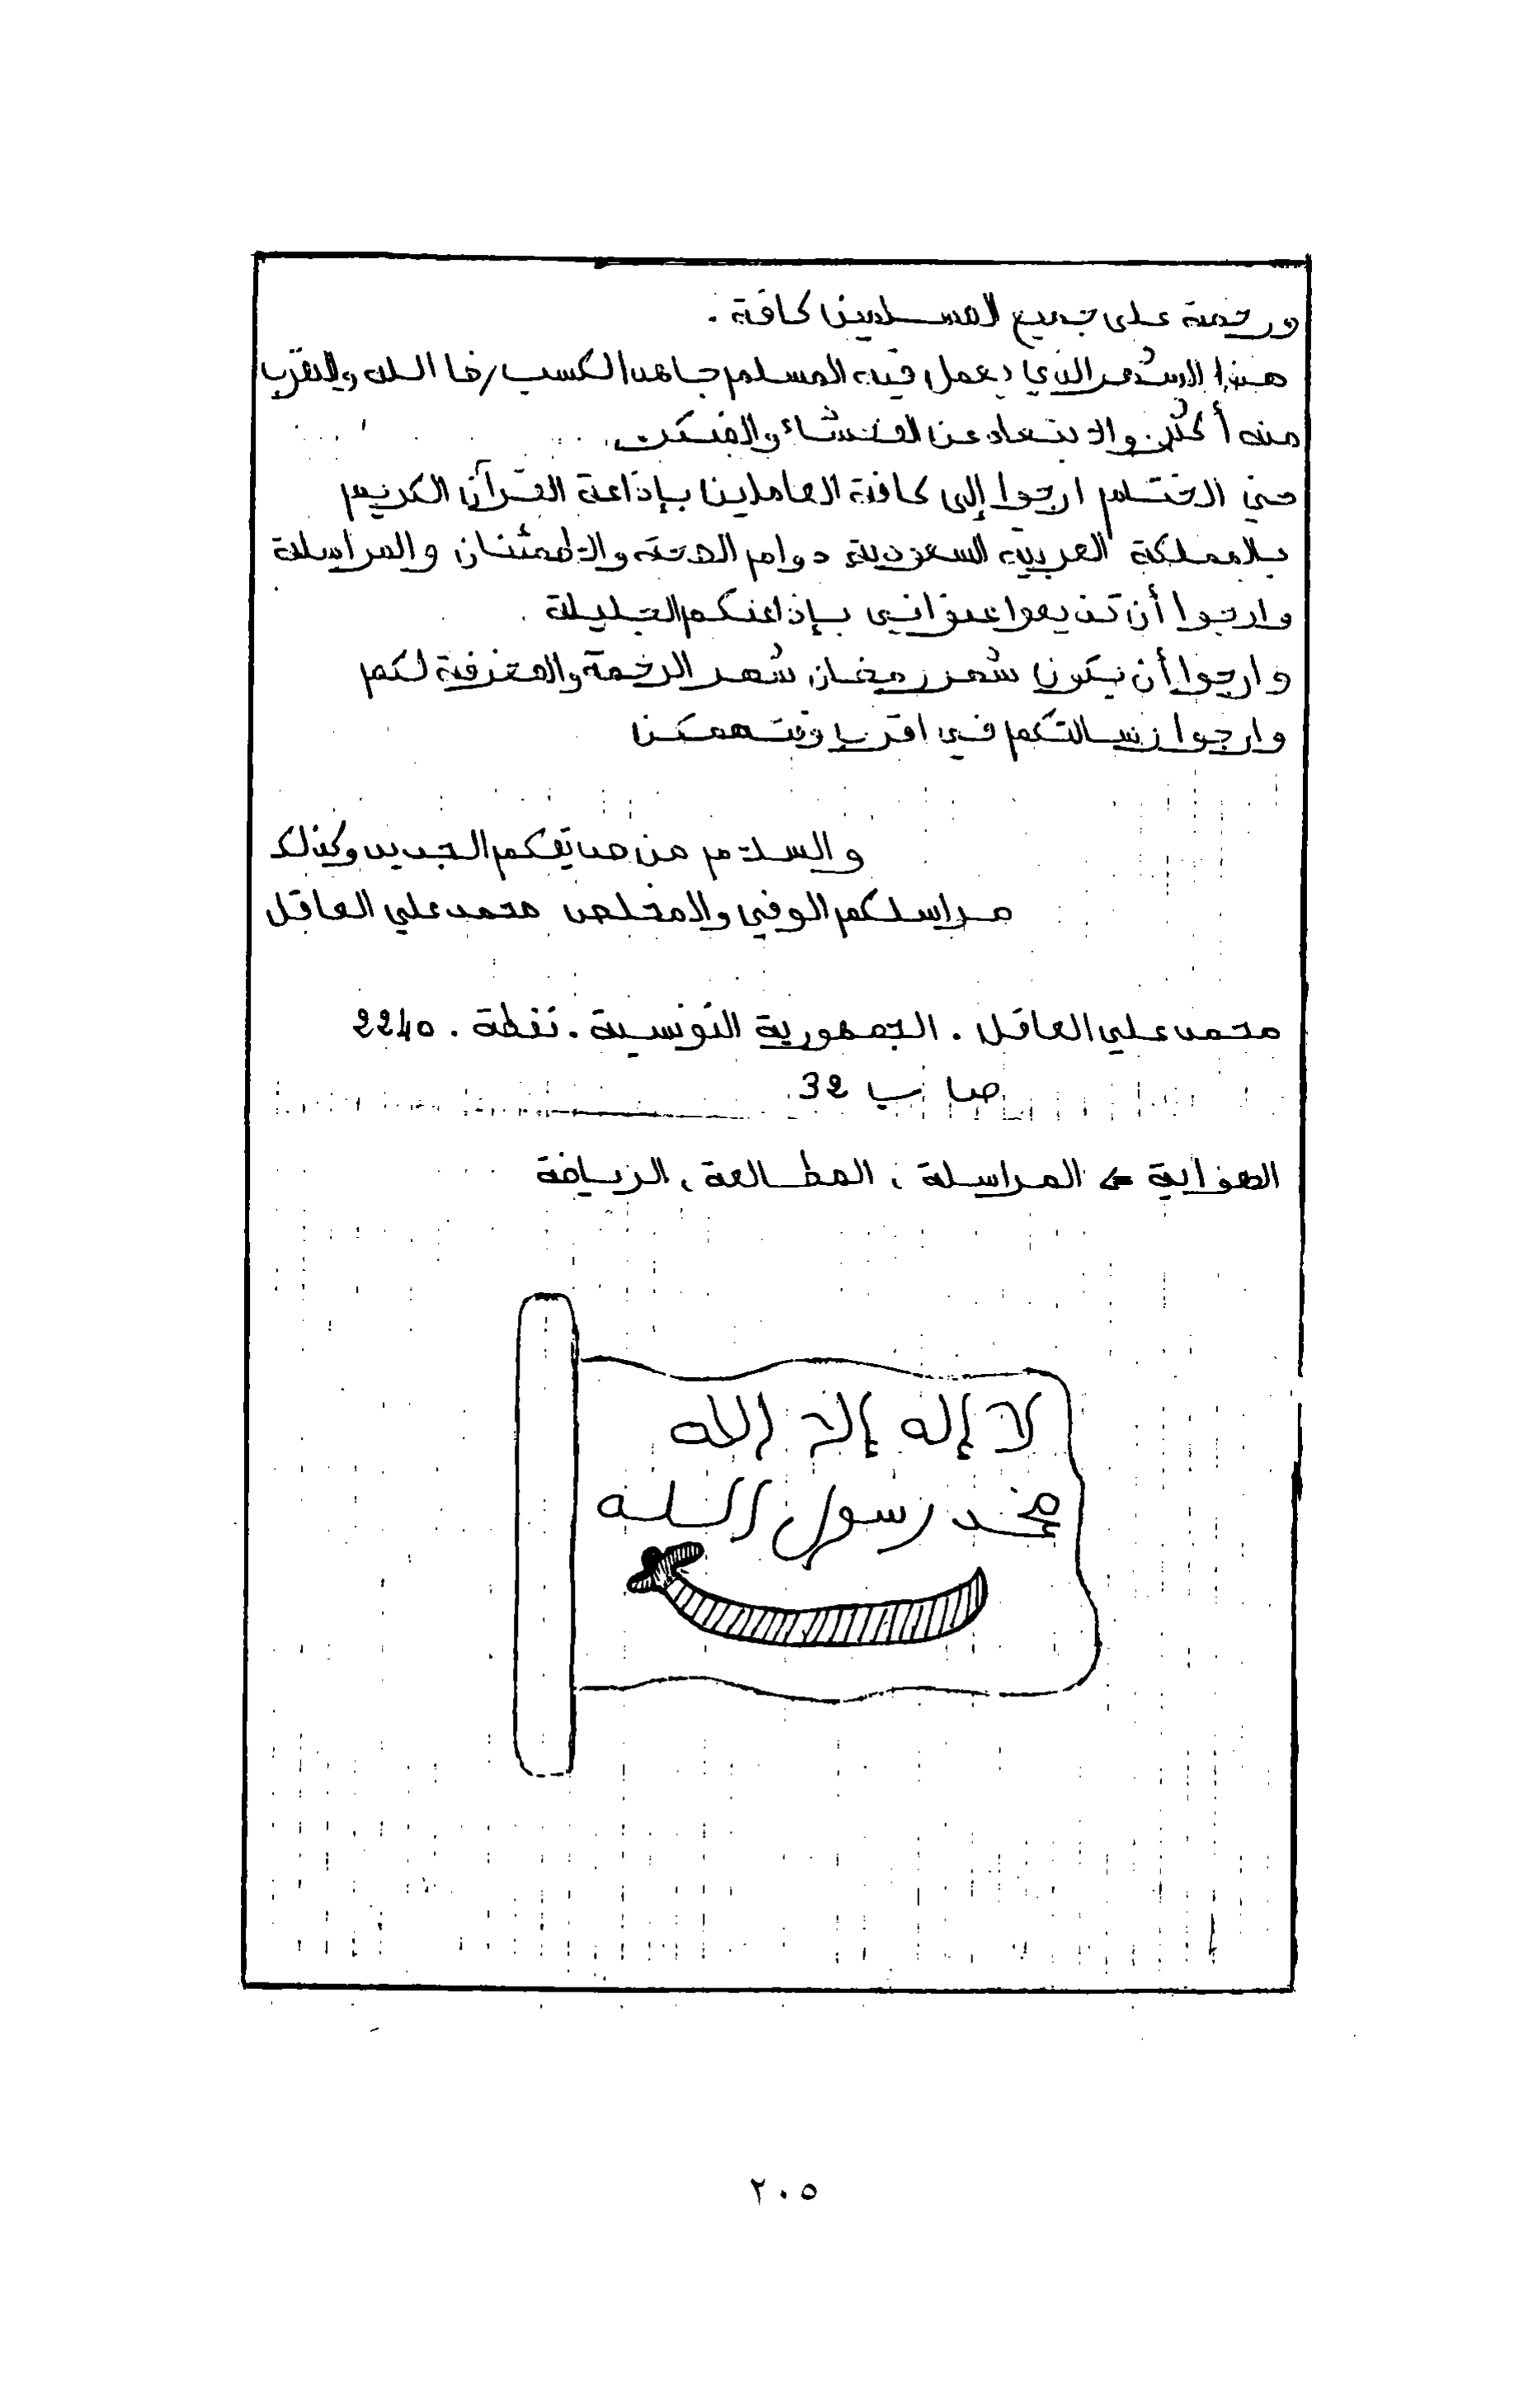 ورحمة على جميع المسلمين كافة .
هذا الشهر الذي يعمل فيه المسلم جاهدا لكسب رضا الله والتقرب
منه أكثر والابتعاد عن الفحشاء والمنكر .
في الختام ارجوا إلى كافة العاملين بإذاعة القرآن الكريم
بالمملكة العربية السعودية دوام الصحة والاطمئنان والمراسلة
وارجوا أن تذيعوا عنواني بإذاعتكم الجليلة .
وارجوا أن يكون شهر رمضان شهر الرحمة والمغفرة لكم
وارجوا رسالتكم في اقرب وقت ممكن
والسلام من صديقكم الجديد وكذلك
مراسلكم الوفي والمخلص محمد علي العاقل
محمد علي العاقل . الجمهورية التونسية . نفطة . 2240
ص ب 32
الهواية ⇐ المراسلة ، المطالعة ، الرياضة
لا إله إلا الله
محمد رسول الله
٢٠٥